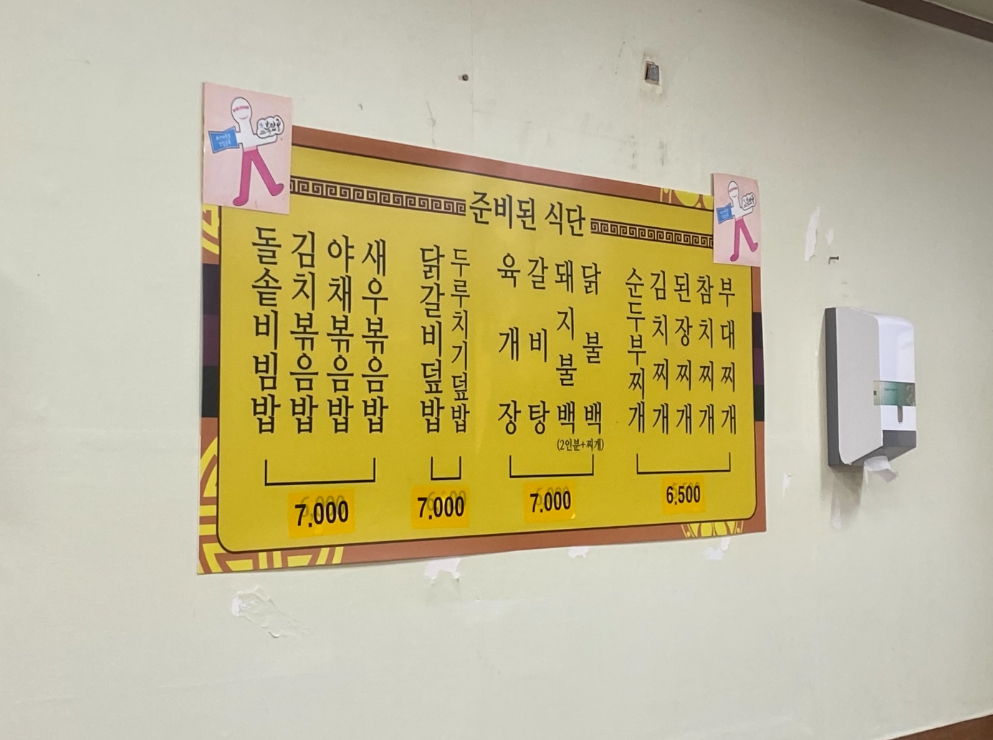 준비된 식단
돌솥비빔밥
김치볶음밥
야채볶음밥
새우볶음밥
7,000
닭갈비덮밥
두루치기덮밥
7,000
육개장
갈비탕
돼지불백
닭불백
(2인분+찌개)
7,000
순두부찌개
김치찌개
된장찌개
참치찌개
부대찌개
6,500